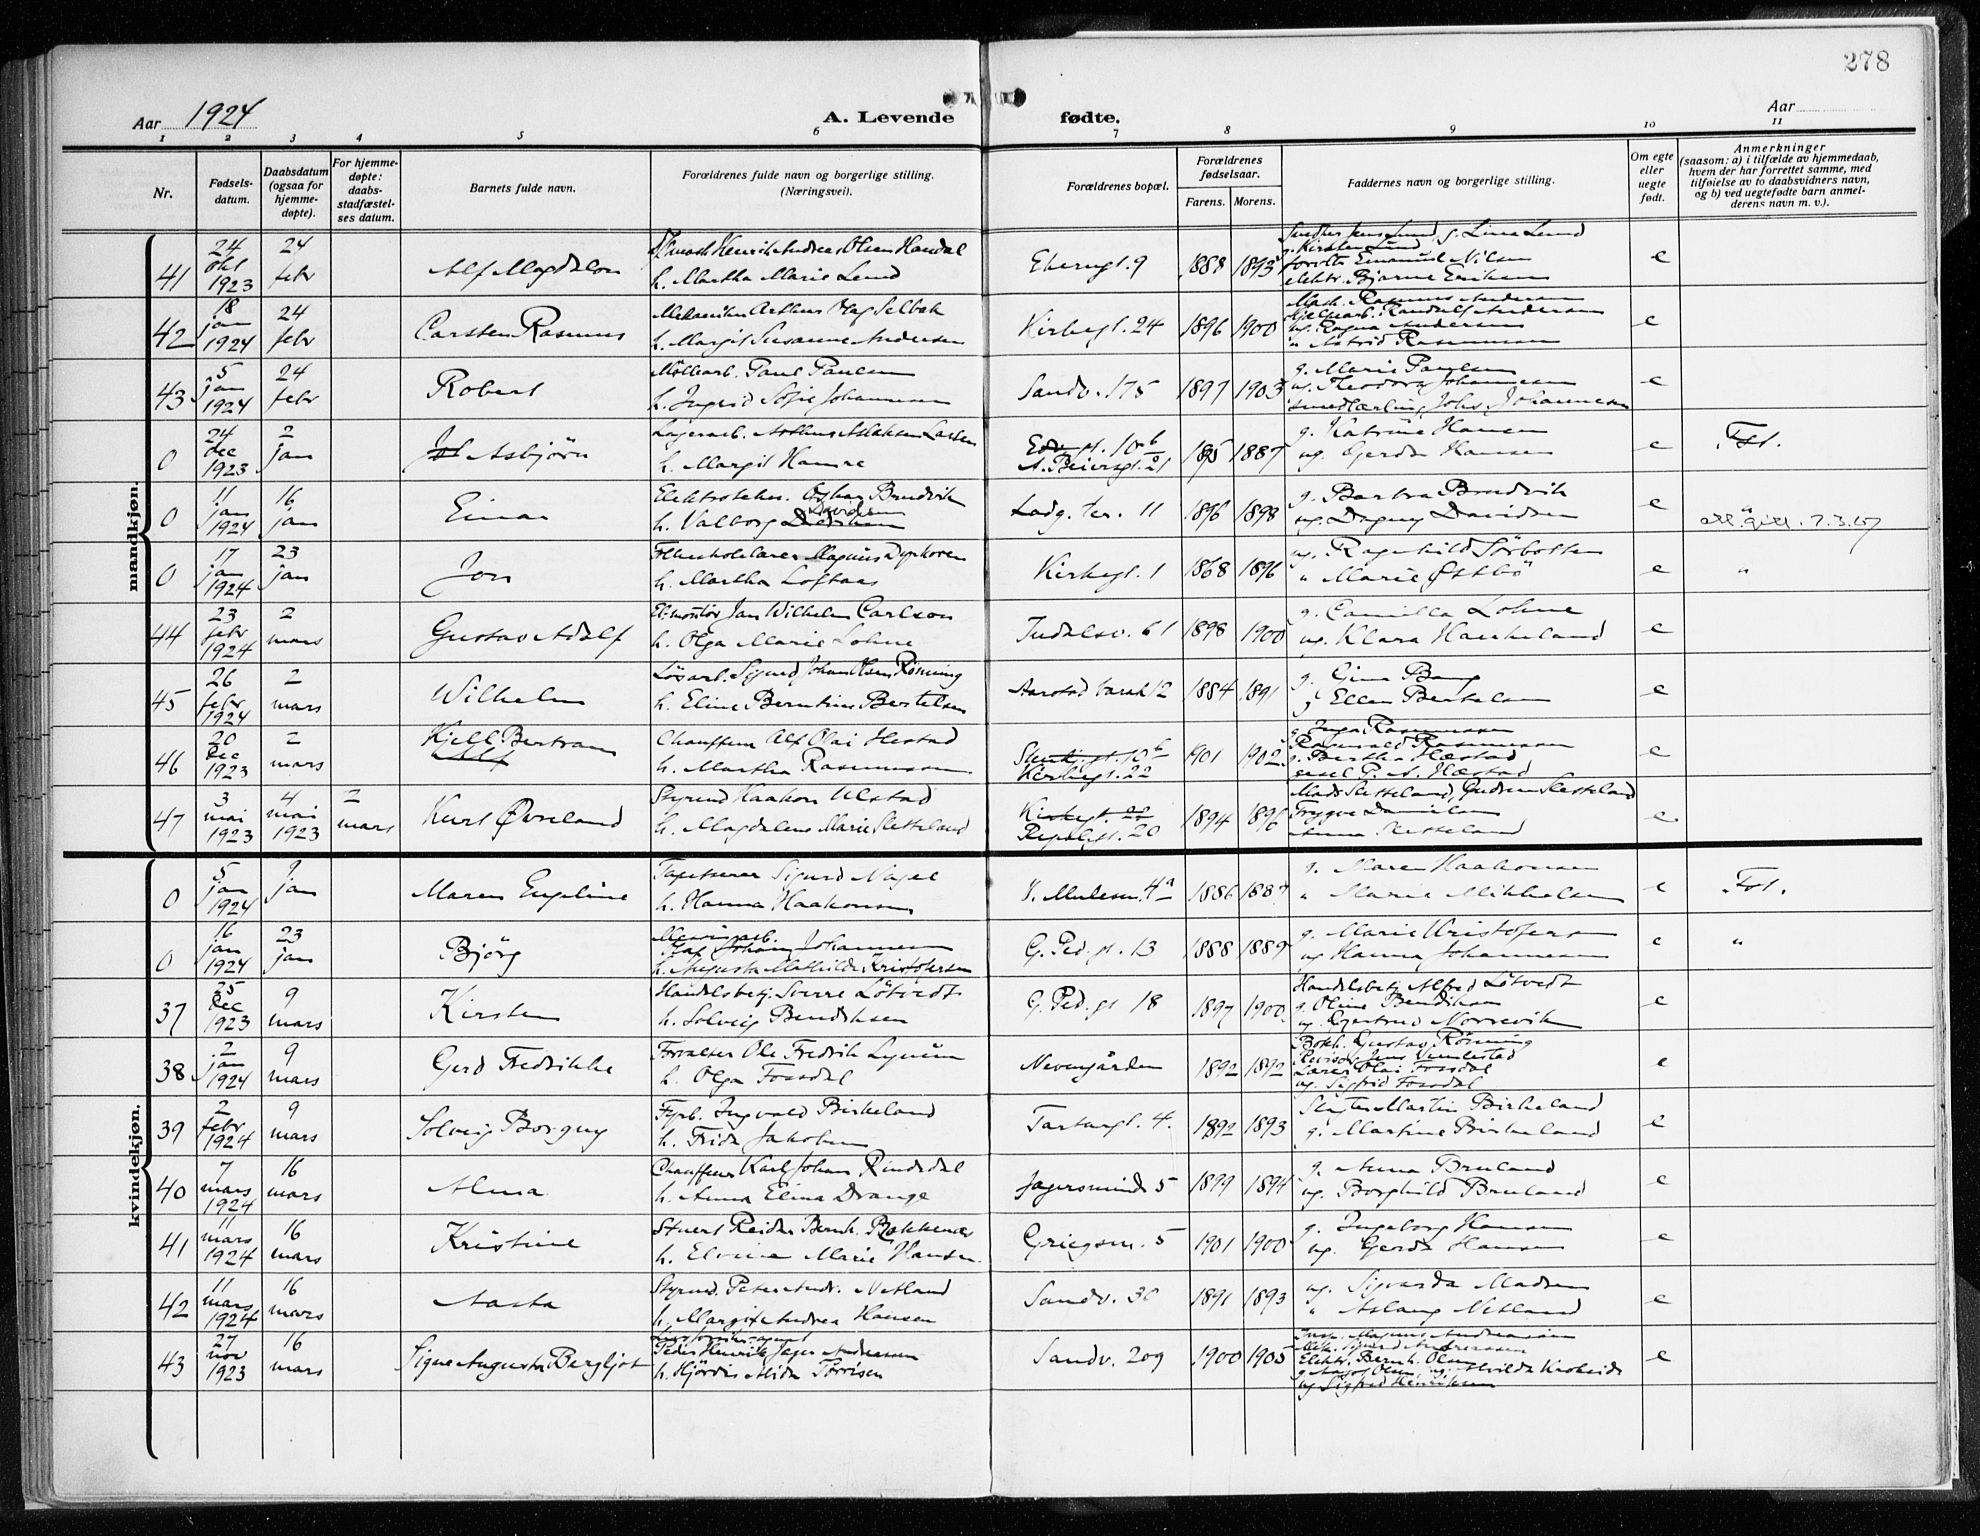 278
Aar 1924
A. Levende fødte.
Aar
1 2 3 4 5 6 7 8 9 10 11
Nr.
Fødselsdatum.
Daabsdatum (ogsaa for hjemmedøpte).
For hjemmedøpte: daabsstadfæstelses datum.
Barnets fulde navn.
Forældrenes fulde navn og borgerlige stilling. (Næringsvei).
Forældrenes bopæl.
Forældrenes fødselsaar.
Farens. Morens.
Faddernes navn og borgerlige stilling.
Om egte eller uegte født.
Anmerkninger (saasom: a) i tilfælde av hjemmedaab, hvem der har forrettet samme, med tilføielse av to daabsvidners navn, og b) ved uegtefødte barn anmelderens navn m. v.).
mandkjøn.
41 24 okt 1923 24 febr Alf Magdalon Henrik Andreas Olsen Handal h. Martha Marie Lund 9 1888 1893 Jens Lund, g. Lina Lund g. Kirsten Lund Emanuel Nilsen elektr. Bjarne Eriksen e
42 18 jan 1924 24 febr Carsten Rasmus Mekaniker Arthur Olaf Selbak h. Margit Susanne Andersen Kirkegt. 24 1896 1900 Mask. Rasmus Andersen Randulf Andersen ug. Ragna Andersen " Astrid Rasmussen e
43 5 jan 1924 24 febr Robert Paul Paulsen h. Ingrid Sofie Johannesen Sandv. 175 1897 1903 g. Marie Paulsen ug. Theodora Johannesen smedlærling Johs. Johannesen e
0 24 dec 1923 2 jan Asbjörn Lagerarb. Larsen h. Margit Hamre 10b A. Beiersgt. 21 1895 1887 g. Katrine Hansen ug. Gerda Hansen e Fst.
0 11 jan 1924 16 jan Einar Oskar Brudvik h. Valborg Davidsen Ladg. ter. 11 1896 1898 g. Barbra Brudvik ug. Dagny Davidsen e 7.3.67
0 17 jan 1924 23 jan Jon Magnus Dyrkoren h. Martha Loftaas Kirkegt. 1 1868 1896 ug. Ragnhild Sørbotten " Marie Østbö e "
44 23 febr 1924 2 mars Gustav Adolf El. montör Jan Wilhelm Carlson h. Olga Marie Lohne Indalsv. 61 1898 1900 g. Camilla Lohne ug. Klara Haukeland e
45 26 febr 1924 2 mars Wilhelm Løsarb. Sigurd Johan Olsen Rønning h. Eline Berntine Bertelsen Aarstad barak 12 1884 1891 g. Gina Bang g. Ellen Bertelsen e
46 20 dec 1923 2 mars Kjell Bertram Chauffeur Alf Olai Hestad h. Martha Rasmussen Kirkegt. 22 1901 1902 g. Inga Rasmussen Ragnvald Rasmussen g. Bertha Hæstad P. A. Hæstad e
47 3 mai 1923 4 mai 1923 2 mars Kurt Øvreland Styrmd Haakon Ulstad h. Magdalene Marie Sletteland 20 1894 1896 Mads Sletteland, Gudrun Sletteland Trygve Danielsen Anna Sletteland e
kvindekjøn.
0 5 jan 1924 9 jan Maren Engeline Tapetserer Sigurd Nagel h. Hanna Haakonsen V. Mulesm. 4a 1886 1887 g. Maren Haakonsen " Maria Mikkelsen e Fst.
0 16 jan 1924 23 jan Björg Olaf Johan Johannesen h. Augusta Mathilde Kristofersen G. Ped. gt. 13 1888 1889 g. Marie Kristofersen ug Hanna Johannesen e "
37 25 dec 1923 9 mars Kirsten Handelsbetj. Sverre Lötvedt h. Solveig Bendiksen G. Ped. gt 18 1897 1900 Handelsbetj Alfred Lötvedt g. Oline Bendiksen ug. Gjertrud Norrevik e
38 2 jan 1924 9 mars Gerd Fredrikke Forvalter Ole Fredrik Lynum h. Olga Fossdal Nevengården 1892 1892 Bokh. Gustav Rönning Revisor Jens Lærer Olai Fossdal ug. Sigfrid Fossdal e
39 2 febr 1924 9 mars Solveig Borgny Fyrb. Ingvald Birkeland h. Frida Jakobsen Tartargt. 4. 1892 1893 Slagter Martin Birkeland g. Martine Birkeland e
40 7 mars 1924 16 mars Alma Chauffeur Karl Johan Rindedal h. Anna Elina Drange Jægersmindе 5 1899 1894 g. Anna Bruland ug. Borghild Bruland e
41 11 mars 1924 16 mars Kristine Stuert Reidar Bernh. Bakkenær h. Elvine Marie Hansen Griegsm. 5 1901 1900 g. Ingeborg Hansen ug. Gerda Hansen e
42 11 mars 1924 16 mars Aasta Styrmd. Peter Andr. Netland h. Margit Andrea Hansen Sandv. 30 1891 1893 ug. Sigvarda Madsen " Aslaug Netland e
43 27 nov 1923 16 mars Signe Augusta Bergljot Peder Henrik Jager Andreassen h. Hjördis Alida Tórrisen Sandv. 209 1900 1905 Magnus Andreassen Sigurd Andreassen Elektr. Bernh. Olsen Olsen, ug. Alvilde ug Sigfrid Henriksen e